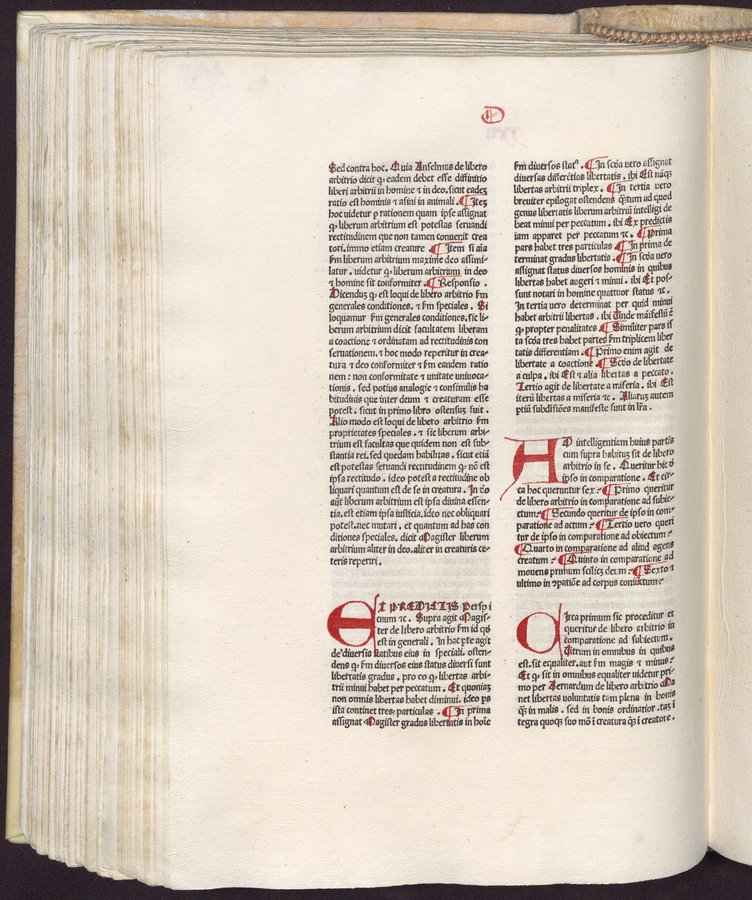 D
Sed contra hoc. Quia Anselmus de libero
arbitrio dicit ꝙ eadem debet esse diffinitio
liberi arbitrii in homine ⁊ in deo. sicut eadeꝫ
ratio est hominis ⁊ asini in animali. ¶Iteꝫ
hoc uidetur ꝑ rationem quam ipse assignat
ꝙ liberum arbitrium est potestas seruandi
rectitudinem que non tamen conuenit crea
tori. immo etiam creature. ¶Item si aĩa
ẜm liberum arbitrium maxime deo assimi-
latur. uidetur ꝙ liberum arbitrium in deo
⁊ homine sit conformiter. ¶Responsio.
Dicenduꝫ ꝙ est loqui de libero arbitrio ẜm
generales conditiones. ⁊ ẜm speciales. Si
loquamur ẜm generales conditiones. sic li-
berum arbitrium dicit facultatem liberam
a coactione ⁊ ordinatam ad rectitudinis con
seruationem. ⁊ hoc modo reperitur in crea-
tura ⁊ deo conformiter ⁊ ẜm eandem ratio
nem: non conformitate ⁊ unitate uniuoca-
tionis. sed potius analogie ⁊ consimilis ha
bitudinis que inter deum ⁊ creaturam esse
potest. sicut in primo libro ostensuꝫ fuit.
Alio modo est loqui de libero arbitrio ẜm
proprietates speciales. ⁊ sic liberum arbi-
trium est facultas que quidem non est sub-
stantia rei. sed quedam habilitas. sicut etiã
est potestas seruandi rectitudinem ꝙ nõ est
ipsa rectitudo. ideo potest a rectitudine ob
liquari quantum est de se in creatura. In d̃o
aũt liberum arbitrium est ipsa diuina essen-
tia. est etiam ipsa iusticia. ideo nec obliquari
potest. nec mutari. et quantum ad has con
ditiones speciales. dicit Magister liberum
arbitrium aliter in deo. aliter in creaturis ce-
teris reperiri.
EX PREDICTIS perspi
cuum ⁊c. Supra agit Magis-
ter de libero arbitrio ẜm id qđ
est in generali. In hac ꝑte agit
de diuersis statibus eius in speciali. osten-
dens ꝙ ẜm diuersos eius status diuersi sunt
libertatis gradus. pro eo ꝙ libertas arbi-
trii minui habet per peccatum. Et quoniaꝫ
non omnis libertas habet diminui. ideo ps
ista continet tres particulas. ¶In prima
assignat Magister gradus libertatis in hoĩe
ẜm diuersos statꝰ. ¶In scđa uero assignat
diuersas differẽtias libertatis. ibi Est nãqꝫ
libertas arbitrii triplex. ¶In tertia uero
breuiter epilogat ostendens q̃tum ad quod
genus libertatis liberum arbitriũ intelligi de
beat minui per peccatum. ibi Ex predictis
iam apparet per peccatum ⁊c. ¶Prima
pars habet tres particulas ¶In prima de
terminat gradus libertatis. ¶In scđa uero
assignat status diuersos hominis in quibus
libertas habet augeri ⁊ minui. ibi Et pos-
sunt notari in homine quattuor status ⁊c.
In tertia uero determinat per quid minui
habet arbitrii libertas. ibi Unde manifestũ ẽ
ꝙ propter penalitates. ¶Similiter pars is
ta scđa tres habet partes ẜm triplicem liber
tatis differentiam. ¶Primo enim agit de
libertate a coactione. ¶Scđo de libertate
a culpa. ibi Est ⁊ alia libertas a peccato.
Tertio agit de libertate a miseria. ibi Est
iterũ libertas a miseria ⁊c. Aliaruꝫ autem
ptiũ subdisiões manifeste sunt in lr̃a.
AD intelligentiam huius partis
cum supra habituꝫ sit de libero
arbitrio in se. Queritur hic đ
ipso in comparatione. Et cir-
ca hoc queruntur sex. ¶Primo queritur
de libero arbitrio in comparatione ad subie-
ctum. ¶Secundo queritur de ipso in com-
paratione ad actum. ¶Tertio uero queri
tur de ipso in comparatione ad obiectum.
¶Quarto in comparatione ad aliud agens
creatum. ¶Quinto in comparatione ad
mouens primum sciliꝫ deum. ¶Sexto ⁊
ultimo in ꝯpatiõe ad corpus coniunctum.
Circa primum sic proceditur et
queritur de libero arbitrio in
comparatione ad subiectum.
Utrum in omnibus in quibus
est. sit equaliter. aut ẜm magis ⁊ minus.
Et ꝙ sit in omnibus equaliter uidetur pri-
mo per Bernardum de libero arbitrio Ma
net libertas uoluntatis tam plena in bonis
q̃ꝫ in malis. sed in bonis ordinatior. taꝫ ĩ
tegra quoqꝫ suo mõ ĩ creatura q̃ꝫ ĩ creatore.